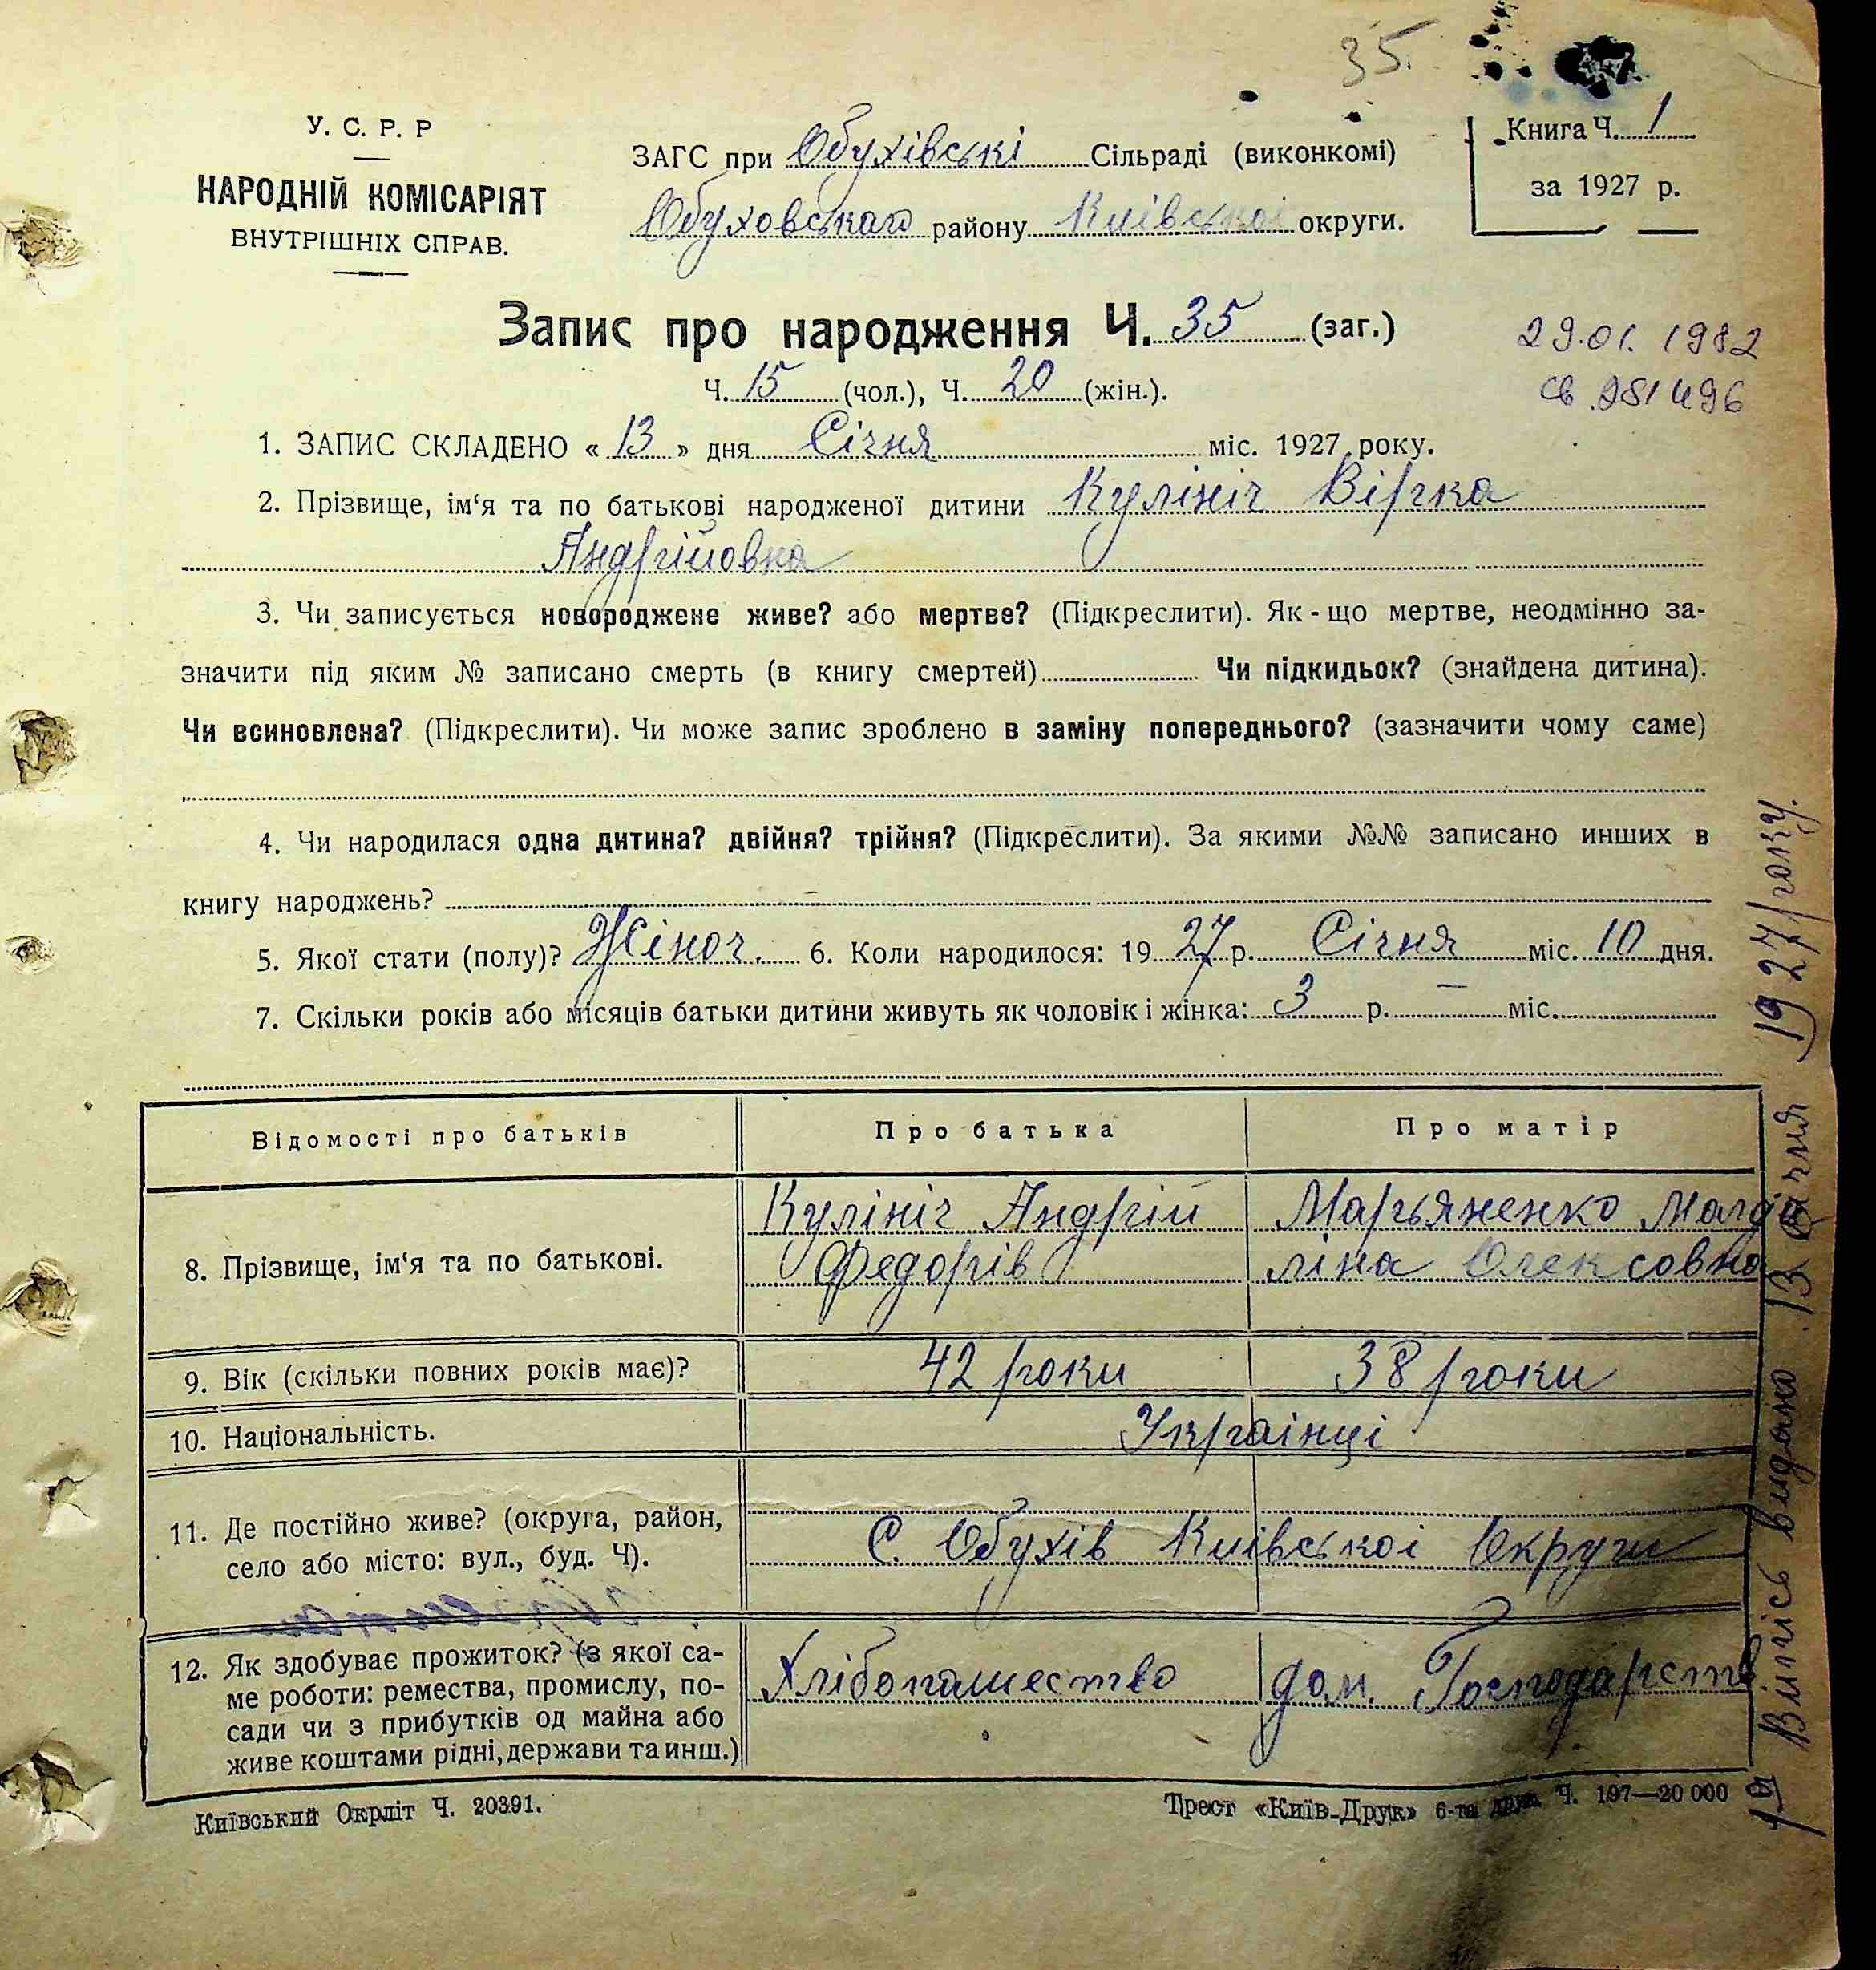 35.
У. С. Р. Р
НАРОДНІЙ КОМІСАРІЯТ
ВНУТРІШНІХ СПРАВ.
ЗАГС при Обухівські Сільраді (виконкомі)
Обуховськаго району Київськоі округи.
Книга Ч. 1
за 1927 р.
Запис про народження Ч. 35 (заг.)
Ч. 15 (чол.), Ч. 20 (жін.).
29.01. 1982
св 981496
1. ЗАПИС СКЛАДЕНО « 13 » дня Січня міс. 1927 року.
2. Прізвище, ім‘я та по батькові народженої дитини Кулініч Вірка
Андрійовна
3. Чи записується новороджене живе? або мертве? (Підкреслити). Як - що мертве, неодмінно за-
значити під яким № записано смерть (в книгу смертей) Чи підкидьок? (знайдена дитина).
Чи всиновлена? (Підкреслити). Чи може запис зроблено в заміну попереднього? (зазначити чому саме)
4. Чи народилася одна дитина? двійня? трійня? (Підкреслити). За якими №№ записано инших в
книгу народжень? –
5. Якої стати (полу)? Жіноч. 6. Коли народилося: 19 27 р. Січня міс. 10 дня.
7. Скільки років або місяців батьки дитини живуть як чоловік і жінка: 3 р. – міс.
Відомості про батьків Про батька Про матір
8. Прізвище, ім‘я та по батькові. Кулініч Андрій Марьяненко Магда
Федорів ліна Олексовна
9. Вік (скільки повних років має)? 42 роки 38 роки
10. Національність. Украінці
11. Де постійно живе? (округа, район,
село або місто: вул., буд. Ч). С. Обухів Київськоі Округи
12. Як здобуває прожиток? (з якої са-
ме роботи: ремества, промислу, по-
сади чи з прибутків од майна або
живе коштами рідні, держави та инш.)
Хлібопашество дом. Господарств
Київський Окрліт Ч. 20391.
Трест «Київ-Друк» 6-та друк. Ч. 197—20 000
Випись видано 13 Січня 1927 року.